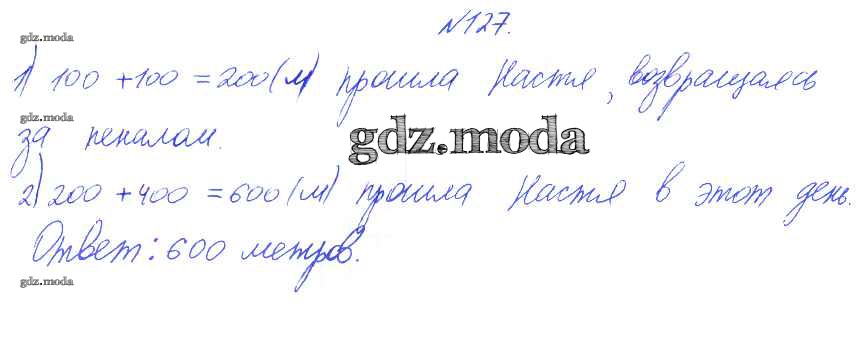 №127.
gdz.moda
1) 100 + 100 = 200 (м) прошла Настя, возвращаясь
gdz.moda
за пеналом.
gdz.moda
2) 200 + 400 = 600 (м) прошла Настя в этот день.
Ответ: 600 метров.
gdz.moda